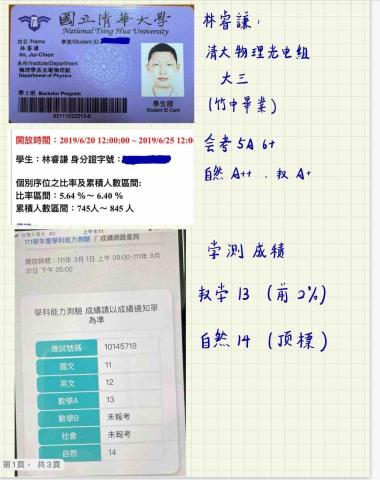 國立清華大學
National Tsing Hua University
姓名/Name
林睿謙
lin, Jui-Chien
學號/Student ID
系所/Institute/Department
物理學系光電物理組
Department of Physics
學士班 Bachelor Program
學生證
Student ID Card
開放時間：2019/6/20 12:00:00 ~ 2019/6/25 12:00
學生：林睿謙 身分證字號：
個別序位之比率及累積人數區間:
比率區間：5.64 %～ 6.40 %
累積人數區間：745人～ 845 人
台灣大哥大 4G
上午6:11
111學年度學科能力測驗 / 成績網路查詢
開放時間：111年 3月 1日 上午 09:00-111年 8月
31日 下午 05:00
學科能力測驗 成績請以成績通知單
為準
應試號碼 10145718
國文 11
英文 12
數學A 13
數學B 未報考
社會 未報考
自然 14
第1頁， 共3頁
林睿謙：
清大物理光电組
大三
(竹中畢業)
会考 5A 6+
自然 A++ . 权 A+
学測成績
权学 13 (前 2%)
自然 14 (顶標)